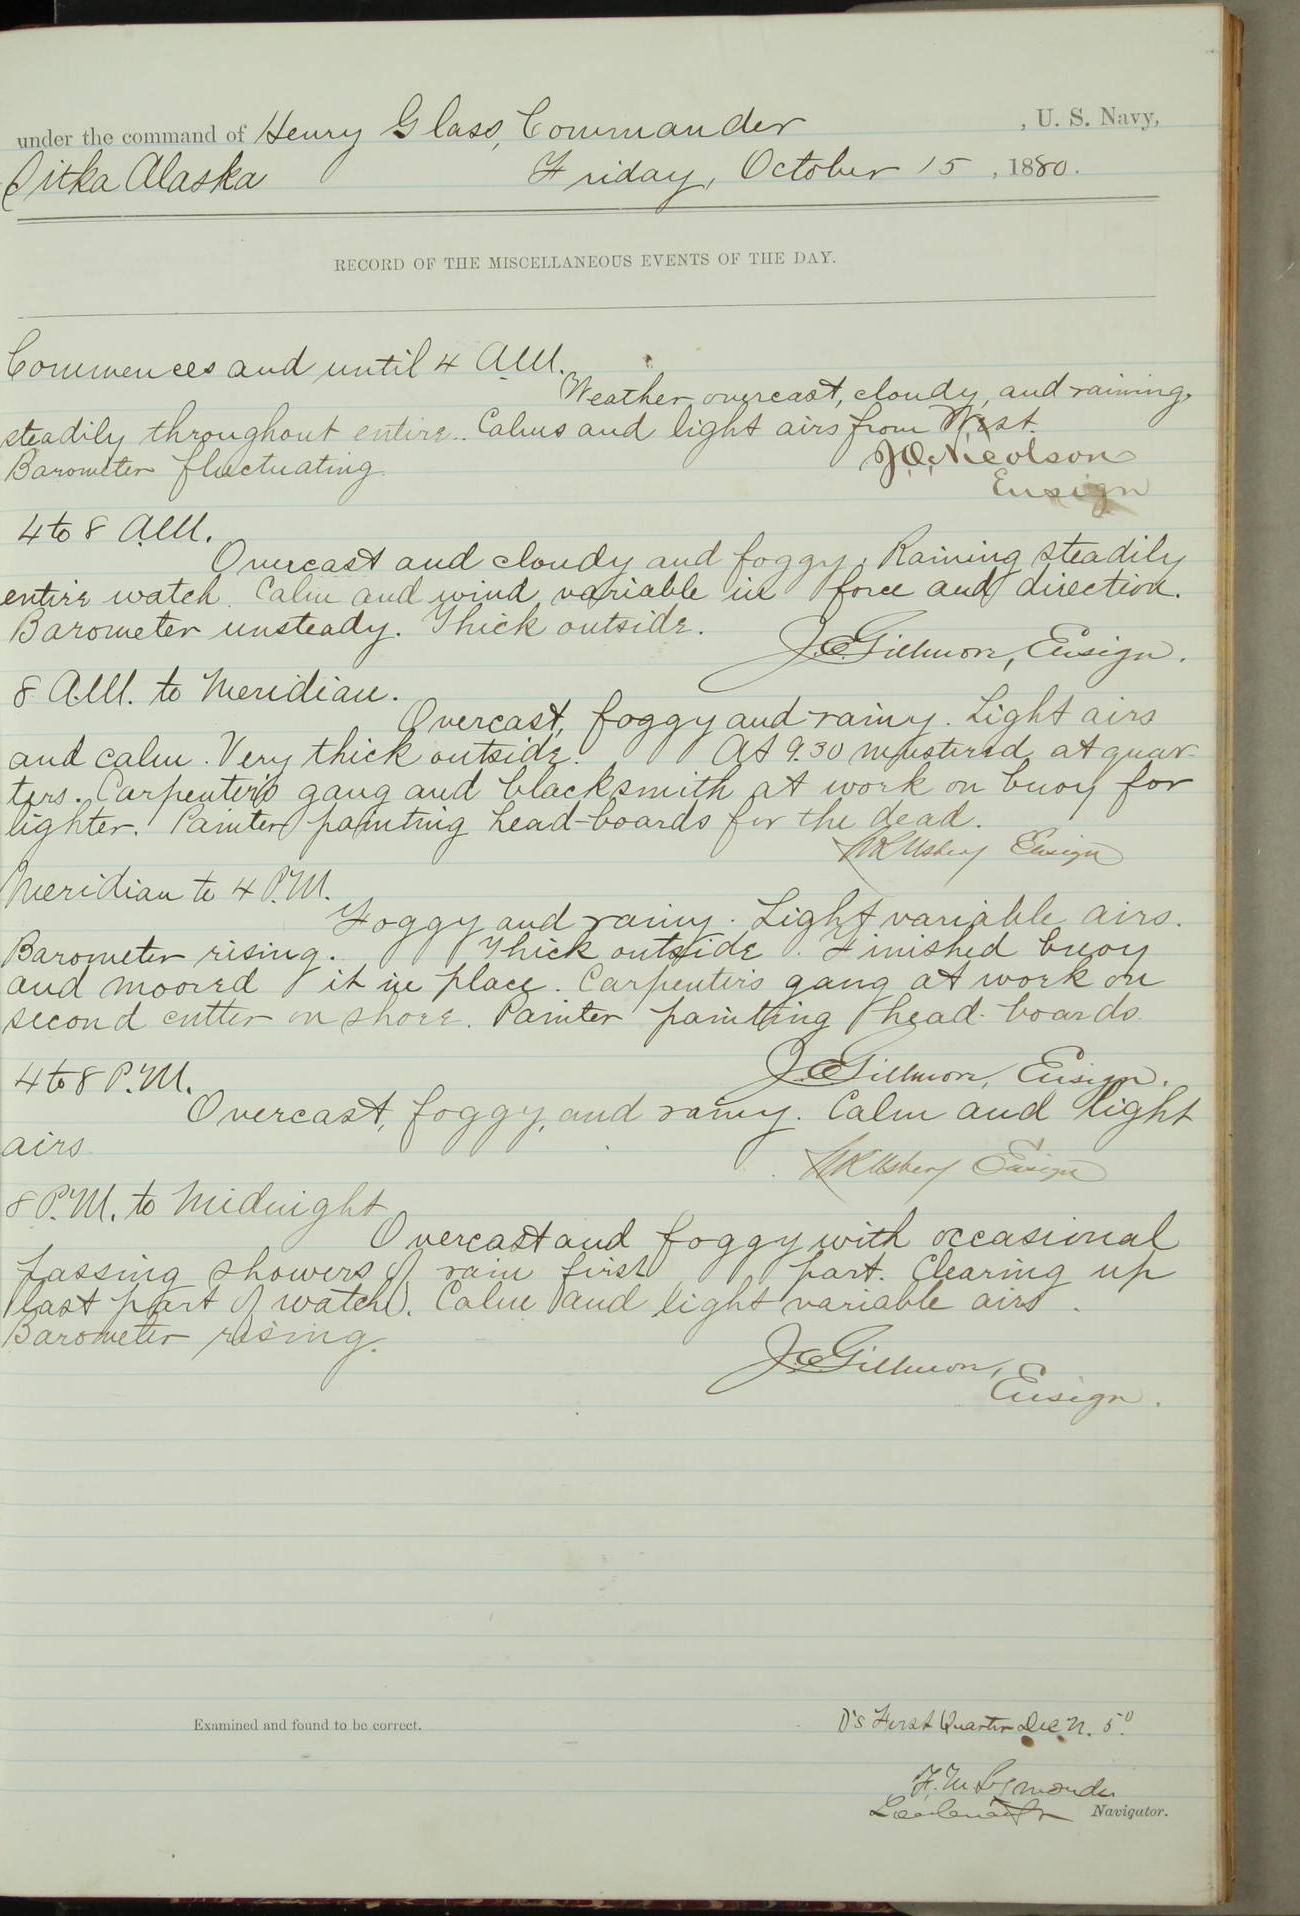 under the command of Henry Glass, Commander , U. S. Navy,
Sitka Alaska Friday, October 15 , 1880.
RECORD OF THE MISCELLANEOUS EVENTS OF THE DAY.
Commences and until 4 A.M.
Weather overcast, cloudy, and raining
steadily throughout entire. Calms and light airs from West.
Barometer fluctuating
J.O. Nicolson
Ensign
4 to 8 A.M.
Overcast and cloudy and foggy. Raining steadily
entire watch. Calm and wind variable in force and direction.
Barometer unsteady. Thick outside.
J.C. Gillmore, Ensign.
8 A.M. to Meridian.
Overcast, foggy and rainy. Light airs
and calm. Very thick outside. At 9.30 mustered at quar-
ters. Carpenter's gang and blacksmith at work on buoy for
lighter. Painter painting head-boards for the dead.
Ensign
Meridian to 4 P.M.
Foggy and rainy. Light variable airs.
Barometer rising. Thick outside. Finished buoy
and moored it in place. Carpenter's gang at work on
second cutter on shore. Painter painting head-boards
J.C. Gillmore, Ensign.
4 to 8 P.M.
Overcast, foggy, and rainy. Calm and light
airs
Ensign
8 P.M. to Midnight
Overcast and foggy with occasional
passing showers of rain first part. Clearing up
last part of watch. Calm and light variable airs.
Barometer rising.
J.C. Gillmore,
Ensign.
Examined and found to be correct.
First Quarter Dec N. 5°
F. M. Symonds
Lieutenant Navigator.